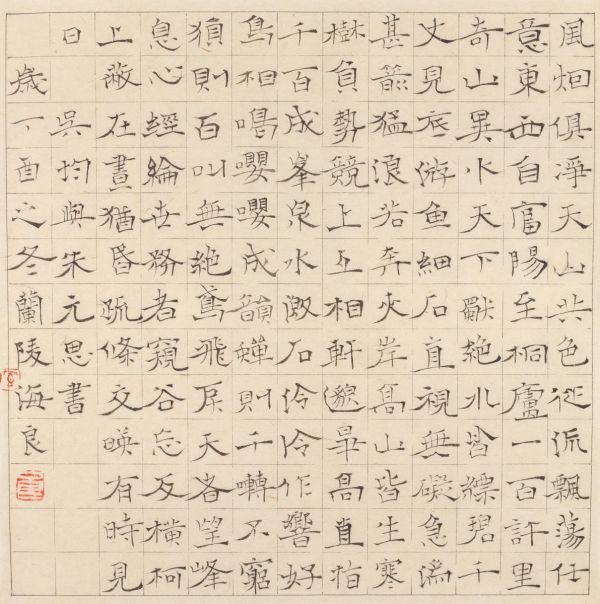 風烟俱淨天山共色從流飄蕩任
意東西自富陽至桐廬一百許里
奇山異水天下獨絕水皆縹碧千
丈見底游魚細石直視無礙急湍
甚箭猛浪若奔夾岸高山皆生寒
樹負勢競上互相軒邈畢高直指
千百成峯泉水激石伶伶作響好
鳥相鳴嚶嚶成韻蟬則千囀不窮
猿則百叫無絕鳶飛戾天者望峰
息心經綸世務者窺谷忘反橫柯
上蔽在晝猶昏疏條交映有時見
日 吳均與朱元思書
歲丁酉之冬蘭陵海良